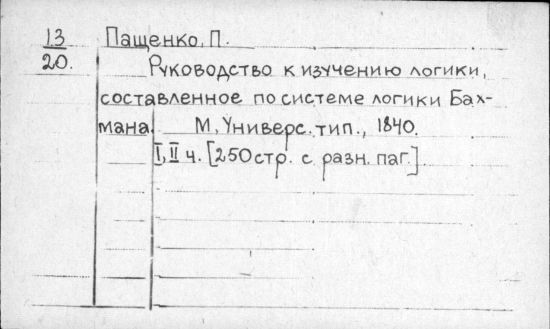 13
20.
Пащенко, П.
Руководство к изучению логики,
составленное по системе логики Бах-
мана. М, Универс. тип., 1840.
I, II ч. [250 стр. с разн. паг.]